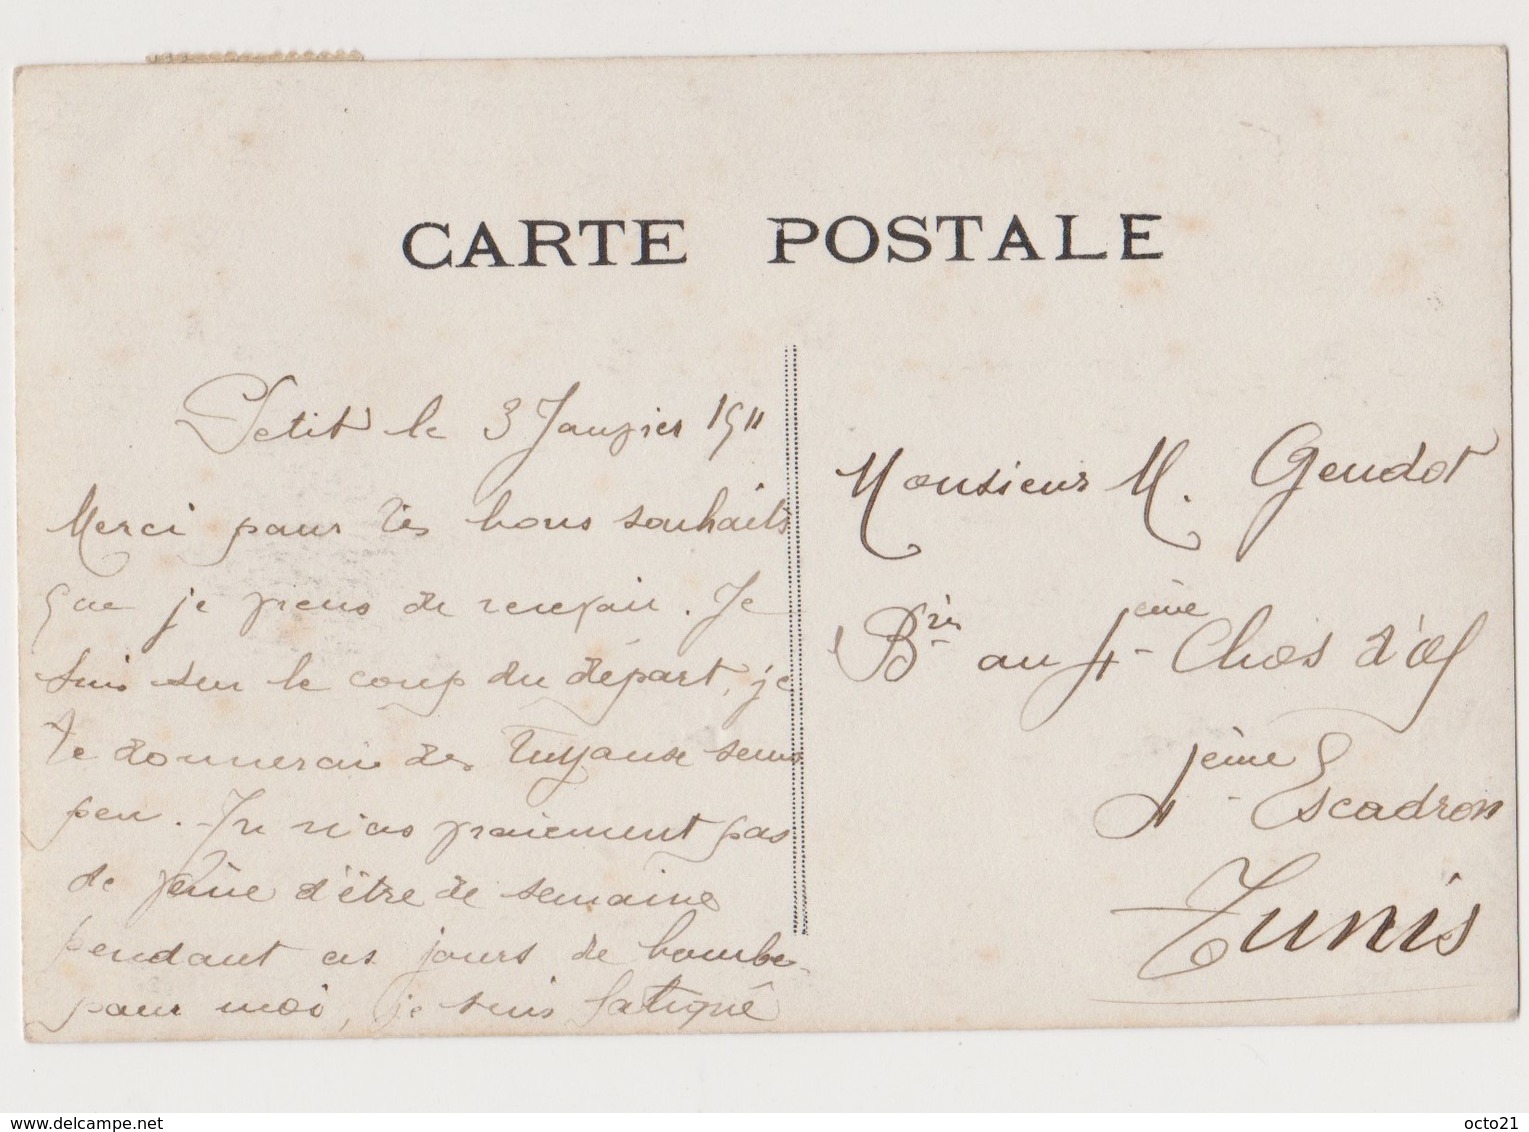 CARTE POSTALE
Setif le 3 Janvier 1911
Merci pour tes bons souhaits
que je viens de recevoir. Je
suis sur le coup du départ, je
te donnerai des tuyaux sous
peu. Tu n'as vraiement pas
de veine d'être de semaine
pendant ces jours de bombe
pour moi, je suis fatigué
Monsieur M. Gendot
B au 4ème Chas d'af
4ème Escadron
Tunis
www.delcampe.net
octo21